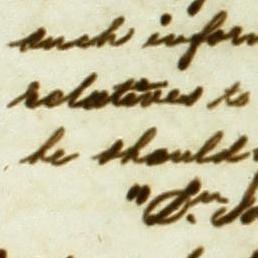 such inform
relatives to
he should
"Dr. Jo